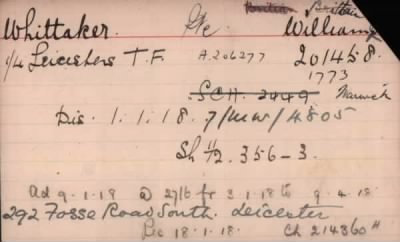 British
Whittaker. Pte William
1/4 Leicesters T.F. A.206277 201458.
1773
SCH. 2449 Warwick
Dis. 1.1.18. 7/MW/4805
Sh 1/2. 356-3.
Ad 9.1.18 @ 27/6 fr 3.1.18 to 9.4.18.
292 Fosse Road South. Leicester
18.1.18. Ch 214360 H